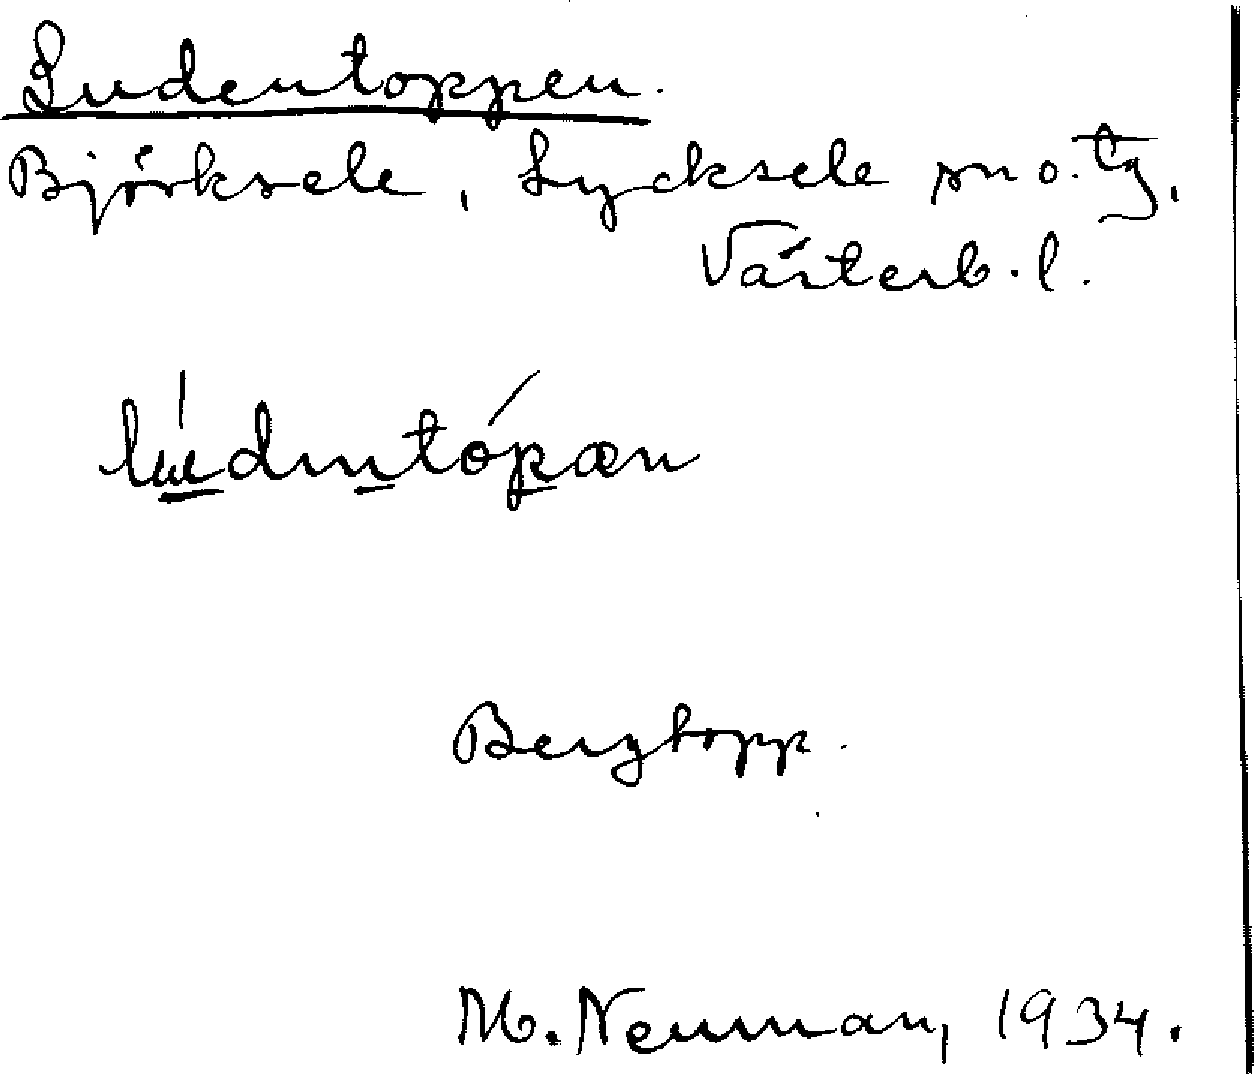 Ludentoppen.
Björksele, Lycksele sn o. tg,
Västerb. l.
Bergtopp.
M. Neuman, 1934.